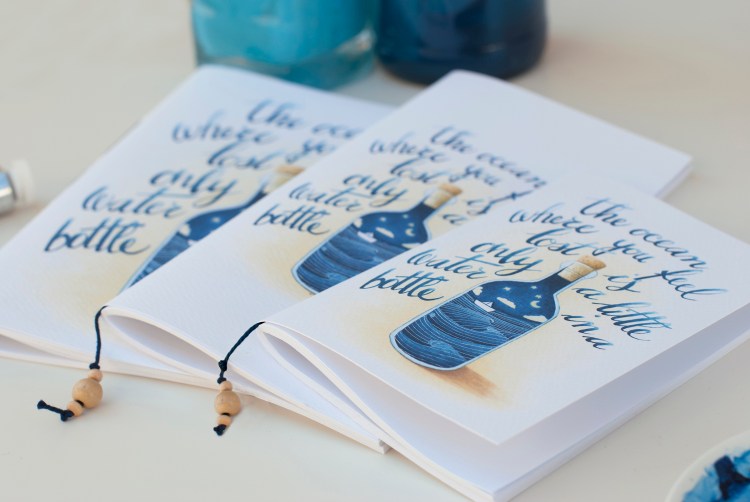 the oce
where you
lost
only
water
bottle
the ocean
where you
lost is
only a
water
bottle
the ocean
where you feel
lost is
only a little
water in a
bottle